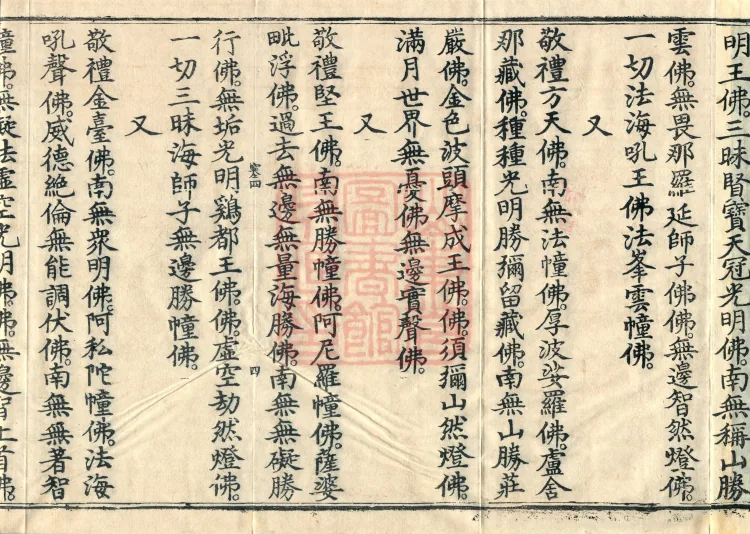 明王佛。三昧賢寶天冠光明佛。南無稱山勝
雲佛。無畏那羅延師子佛。佛。無邊智然燈佛。
一切法海吼王佛。法峯雲幢佛。
又
敬禮方天佛。南無法幢佛。厚波娑羅佛。盧舍
那藏佛。種種光明勝彌留藏佛。南無山勝莊
嚴佛。金色波頭摩成王佛。佛。須彌山然燈佛。
滿月世界無憂佛。無邊實聲佛。
又
敬禮堅王佛。南無勝幢佛。阿尼羅幢佛。薩婆
毗浮佛。過去無邊無量海勝佛。南無無礙勝
寒四
四
行佛。無垢光明鷄都王佛。佛。虛空劫然燈佛。
一切三昧海師子無邊勝幢佛。
又
敬禮金臺佛。南無衆明佛。阿私陀幢佛。法海
吼聲佛。威德絕倫無能調伏佛。南無無著智
幢佛。無礙法虛空光明佛。佛。無邊智上首佛。